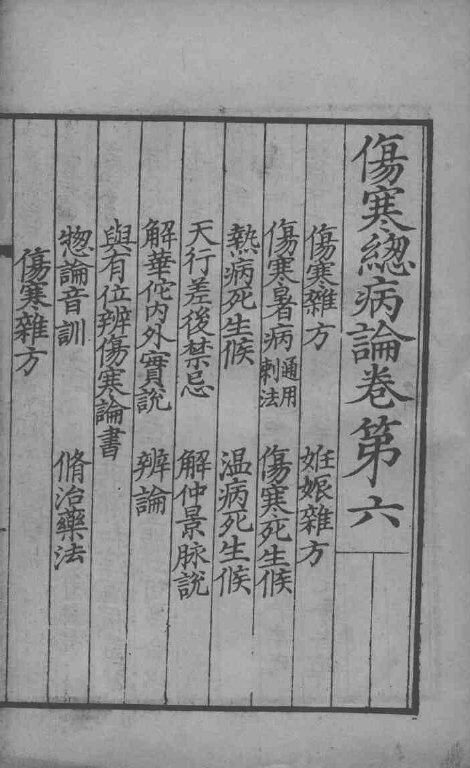 傷寒緫病論卷第六
傷寒雜方　妊娠雜方
傷寒暑病通用刺法　傷寒死生候
熱病死生候　温病死生候
天行差後禁忌　解仲景脉說
解華佗内外實說　辨論
與有位辨傷寒論書
惣論音訓　脩治藥法
傷寒雜方